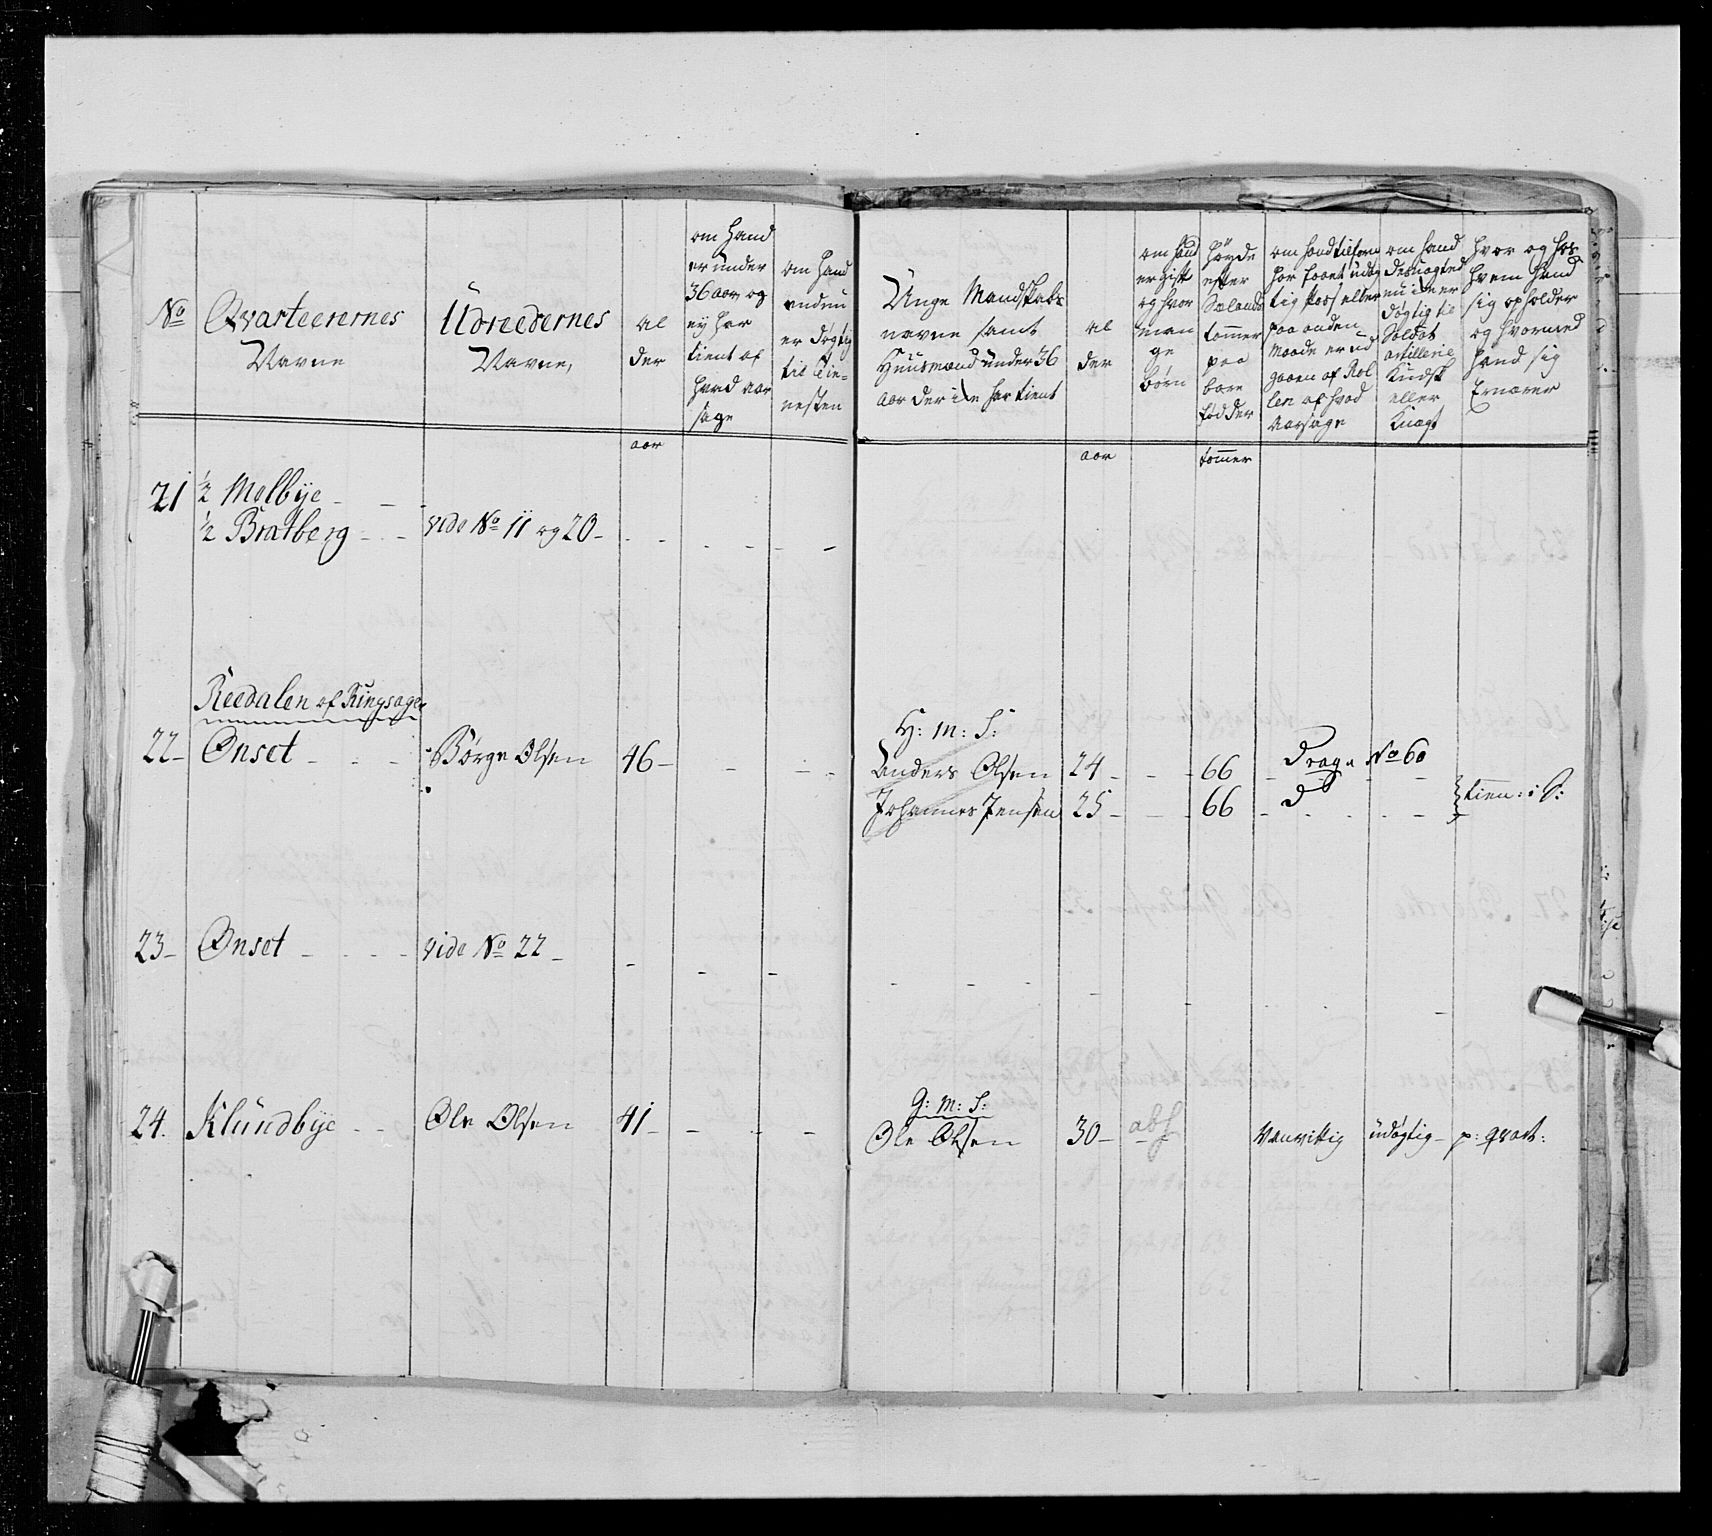 No
Qvarteerernes
Navne
Udreedernes
Navne,
al
der
om hand
er under
36 aar og
ey har
tient af
hvad aar
sage
om hand
endnu
er døgtig
til Tie=
nesten
Unge Mandskabs
navne samt
Huusmænd under 36
aar der i har tient
al
der
om hand
er gift
og hvor
man
ge
børn
høyde
efter
Sælands
tommer
paa
bare
fødder
om hand tilforn
har faaet udøg
tig Pass eller
paa anden
Maade er ud
gaaen af Rol
len af hvad
Aarsage
om hand
desuagted
nu er
døgtig til
Soldat
artillerie
Kudsk
eller
Knægt
hvor og hos
hvem hand
sig opholder
og hvormed
hand sig
Ernærer
aar
aar
tommer
21 ½ Melbye - -
½ Bratberg - - vide No 11 og 20 - - - - - - -
Reedalen af Ringsager
22 - Ønset - - - Børge Olsen 46 - - - -
H: m: S:
Anders Olsen 24 - - - 66 - Drag: No 60
Johannes Jensen 25 - - - 66 - d° - - - - tien: i S:
23 - Ønset - - - - vide No 22 - - - -
24. Klundbye - - Ole Olsen 41 - - - -
G: M: S:
Ole Olsen 30 - Vanvittig udøgtig - p: qvart: